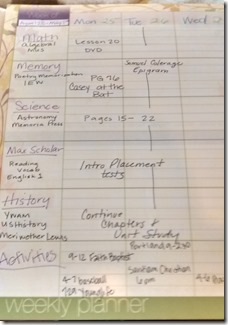 Mon 25 Tue 26 Wed 2
Math
Algebra
Lesson 20
DVD
Memory
Poetry Memorization
IEW
Samuel Coleridge
Epigram
PG 76
Casey at the
Bat
Science
Astronomy
Memoria Press
Pages 15 - 22
Max Scholar
Reading
Vocab
English 1
Intro Placement
tests
History
US History
Meriwether Lewis
Continue
Chapters &
Unit Study
Activities
4-7 baseball
6pm
weekly planner